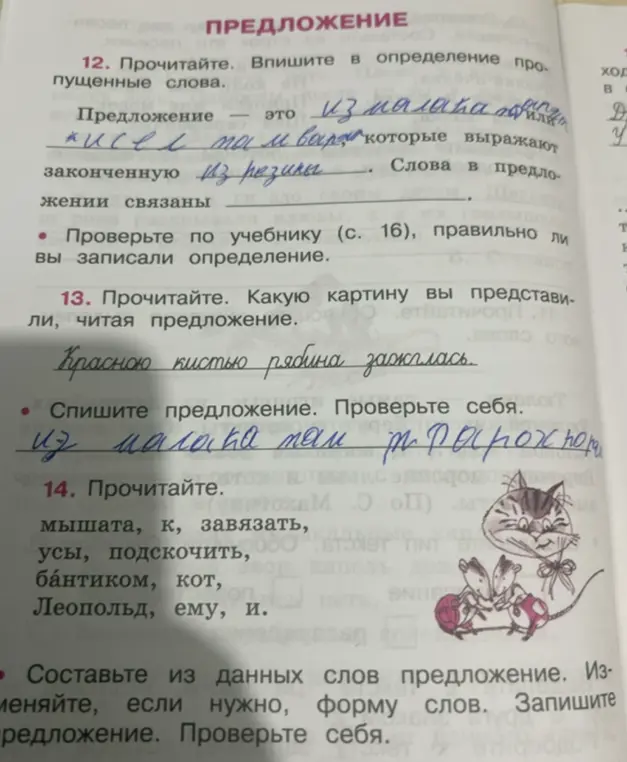 ПРЕДЛОЖЕНИЕ
12. Прочитайте. Впишите в определение про-
пущенные слова.
Предложение — это из малака или
кисел там варят, которые выражают
законченную из резины. Слова в предло-
жении связаны .
• Проверьте по учебнику (с. 16), правильно ли
вы записали определение.
13. Прочитайте. Какую картину вы представи-
ли, читая предложение.
Красною кистью рябина зажглась.
• Спишите предложение. Проверьте себя.
из малака там
14. Прочитайте.
мышата, к, завязать,
усы, подскочить,
ба́нтиком, кот,
Леопольд, ему, и.
• Составьте из данных слов предложение. Из-
меняйте, если нужно, форму слов. Запишите
редложение. Проверьте себя.